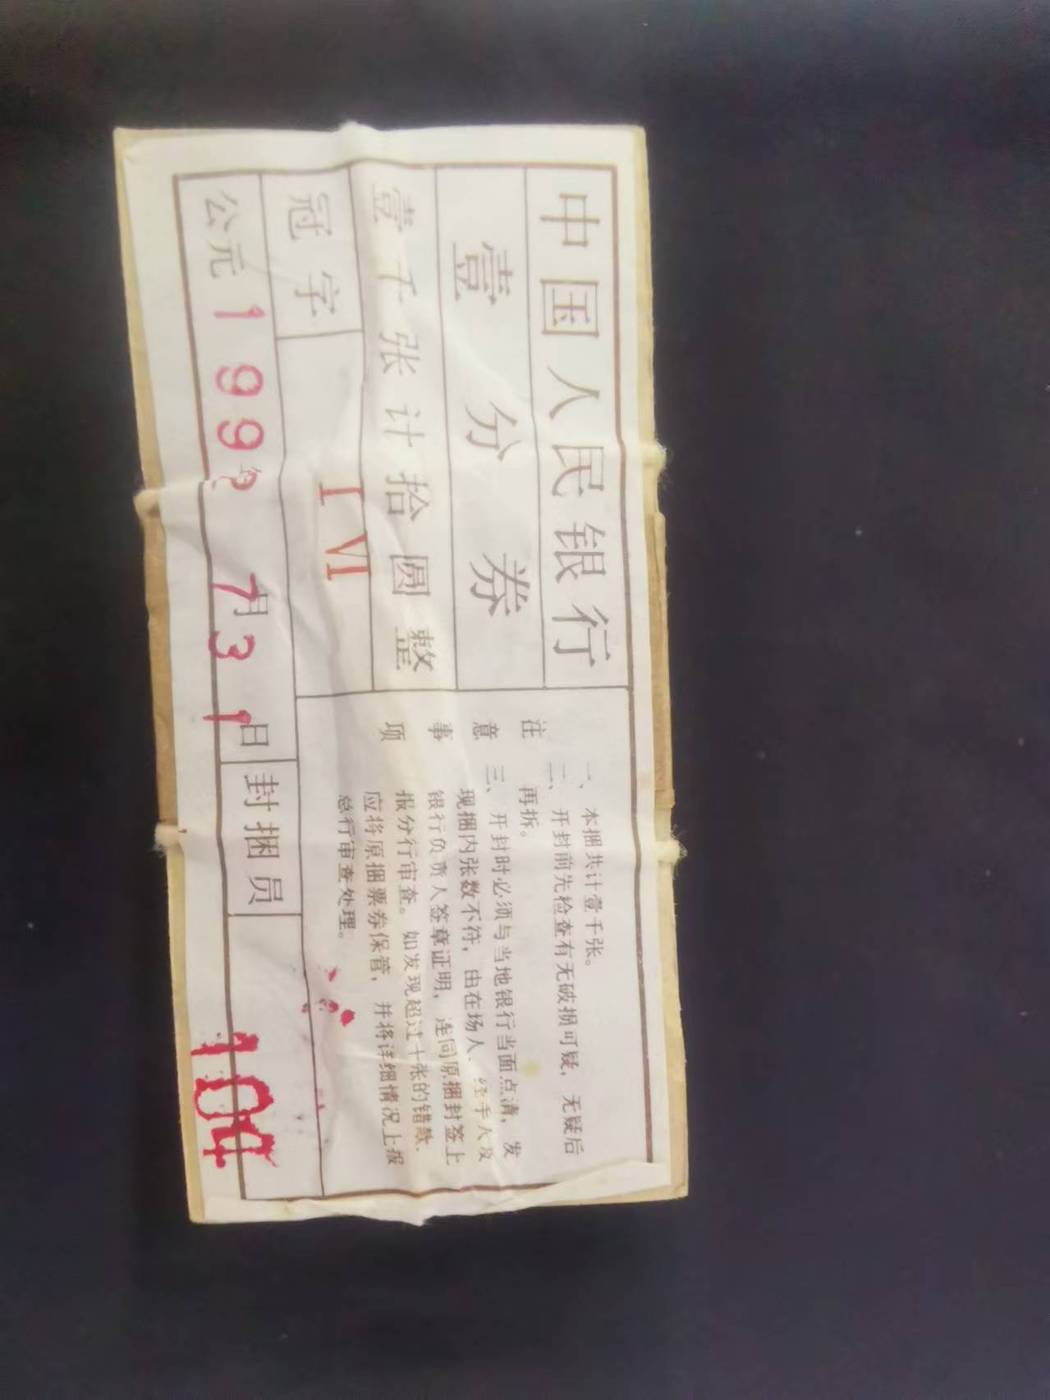 中国人民银行
壹分券
壹千张计拾圆整
冠字
I VI
公元199 年7月31日
封捆员
104
注意事项
一、本捆共计壹千张。
二、开封前先检查有无破损可疑，无疑后
再拆。
三、开封时必须与当地银行当面点清，发
现捆内张数不符，由在场人、经手人及
银行负责人签章证明，连同原捆封签上
报分行审查。如发现超过十张的错款，
应将原捆票券保管，并将详细情况上报
总行审查处理。